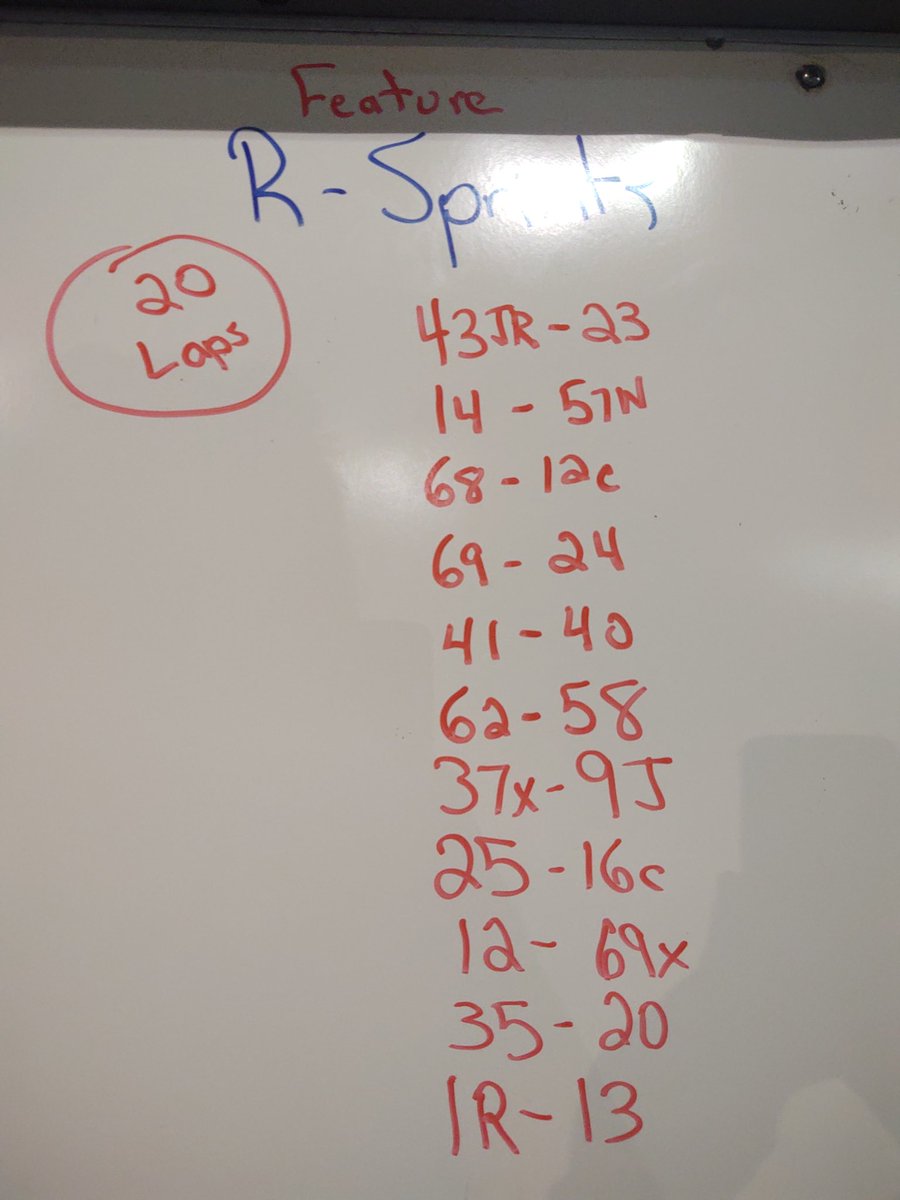 Feature
R-Sprints
20
Laps
43JR-23
14-57N
68-12c
69-24
41-40
62-58
37x-9J
25-16c
12-69x
35-20
1R-13